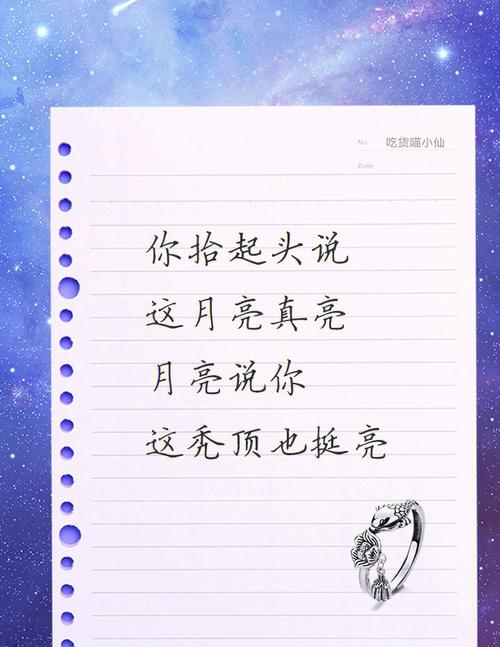 No 吃货喵小仙
Date
你抬起头说
这月亮真亮
月亮说你
这秃顶也挺亮